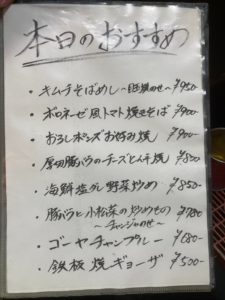 本日のおすすめ
・キムチそばめし〜目玉焼のせ〜 ¥950-
・ボロネーゼ風トマト焼きそば ¥900-
・おろしポンズお好み焼 ¥900-
・厚切豚バラのチーズとんチ焼 ¥800
・海鮮塩ダレ野菜炒め ¥850-
・豚バラと小松菜の炒めもの ¥780-
〜チャンジャのせ〜
・ゴーヤチャンプルー ¥680-
・鉄板焼ギョーザ ¥500-